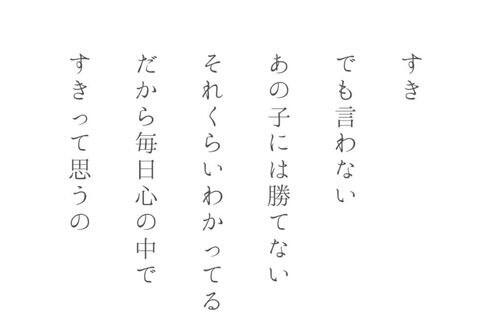 すき
でも言わない
あの子には勝てない
それくらいわかってる
だから毎日心の中で
すきって思うの